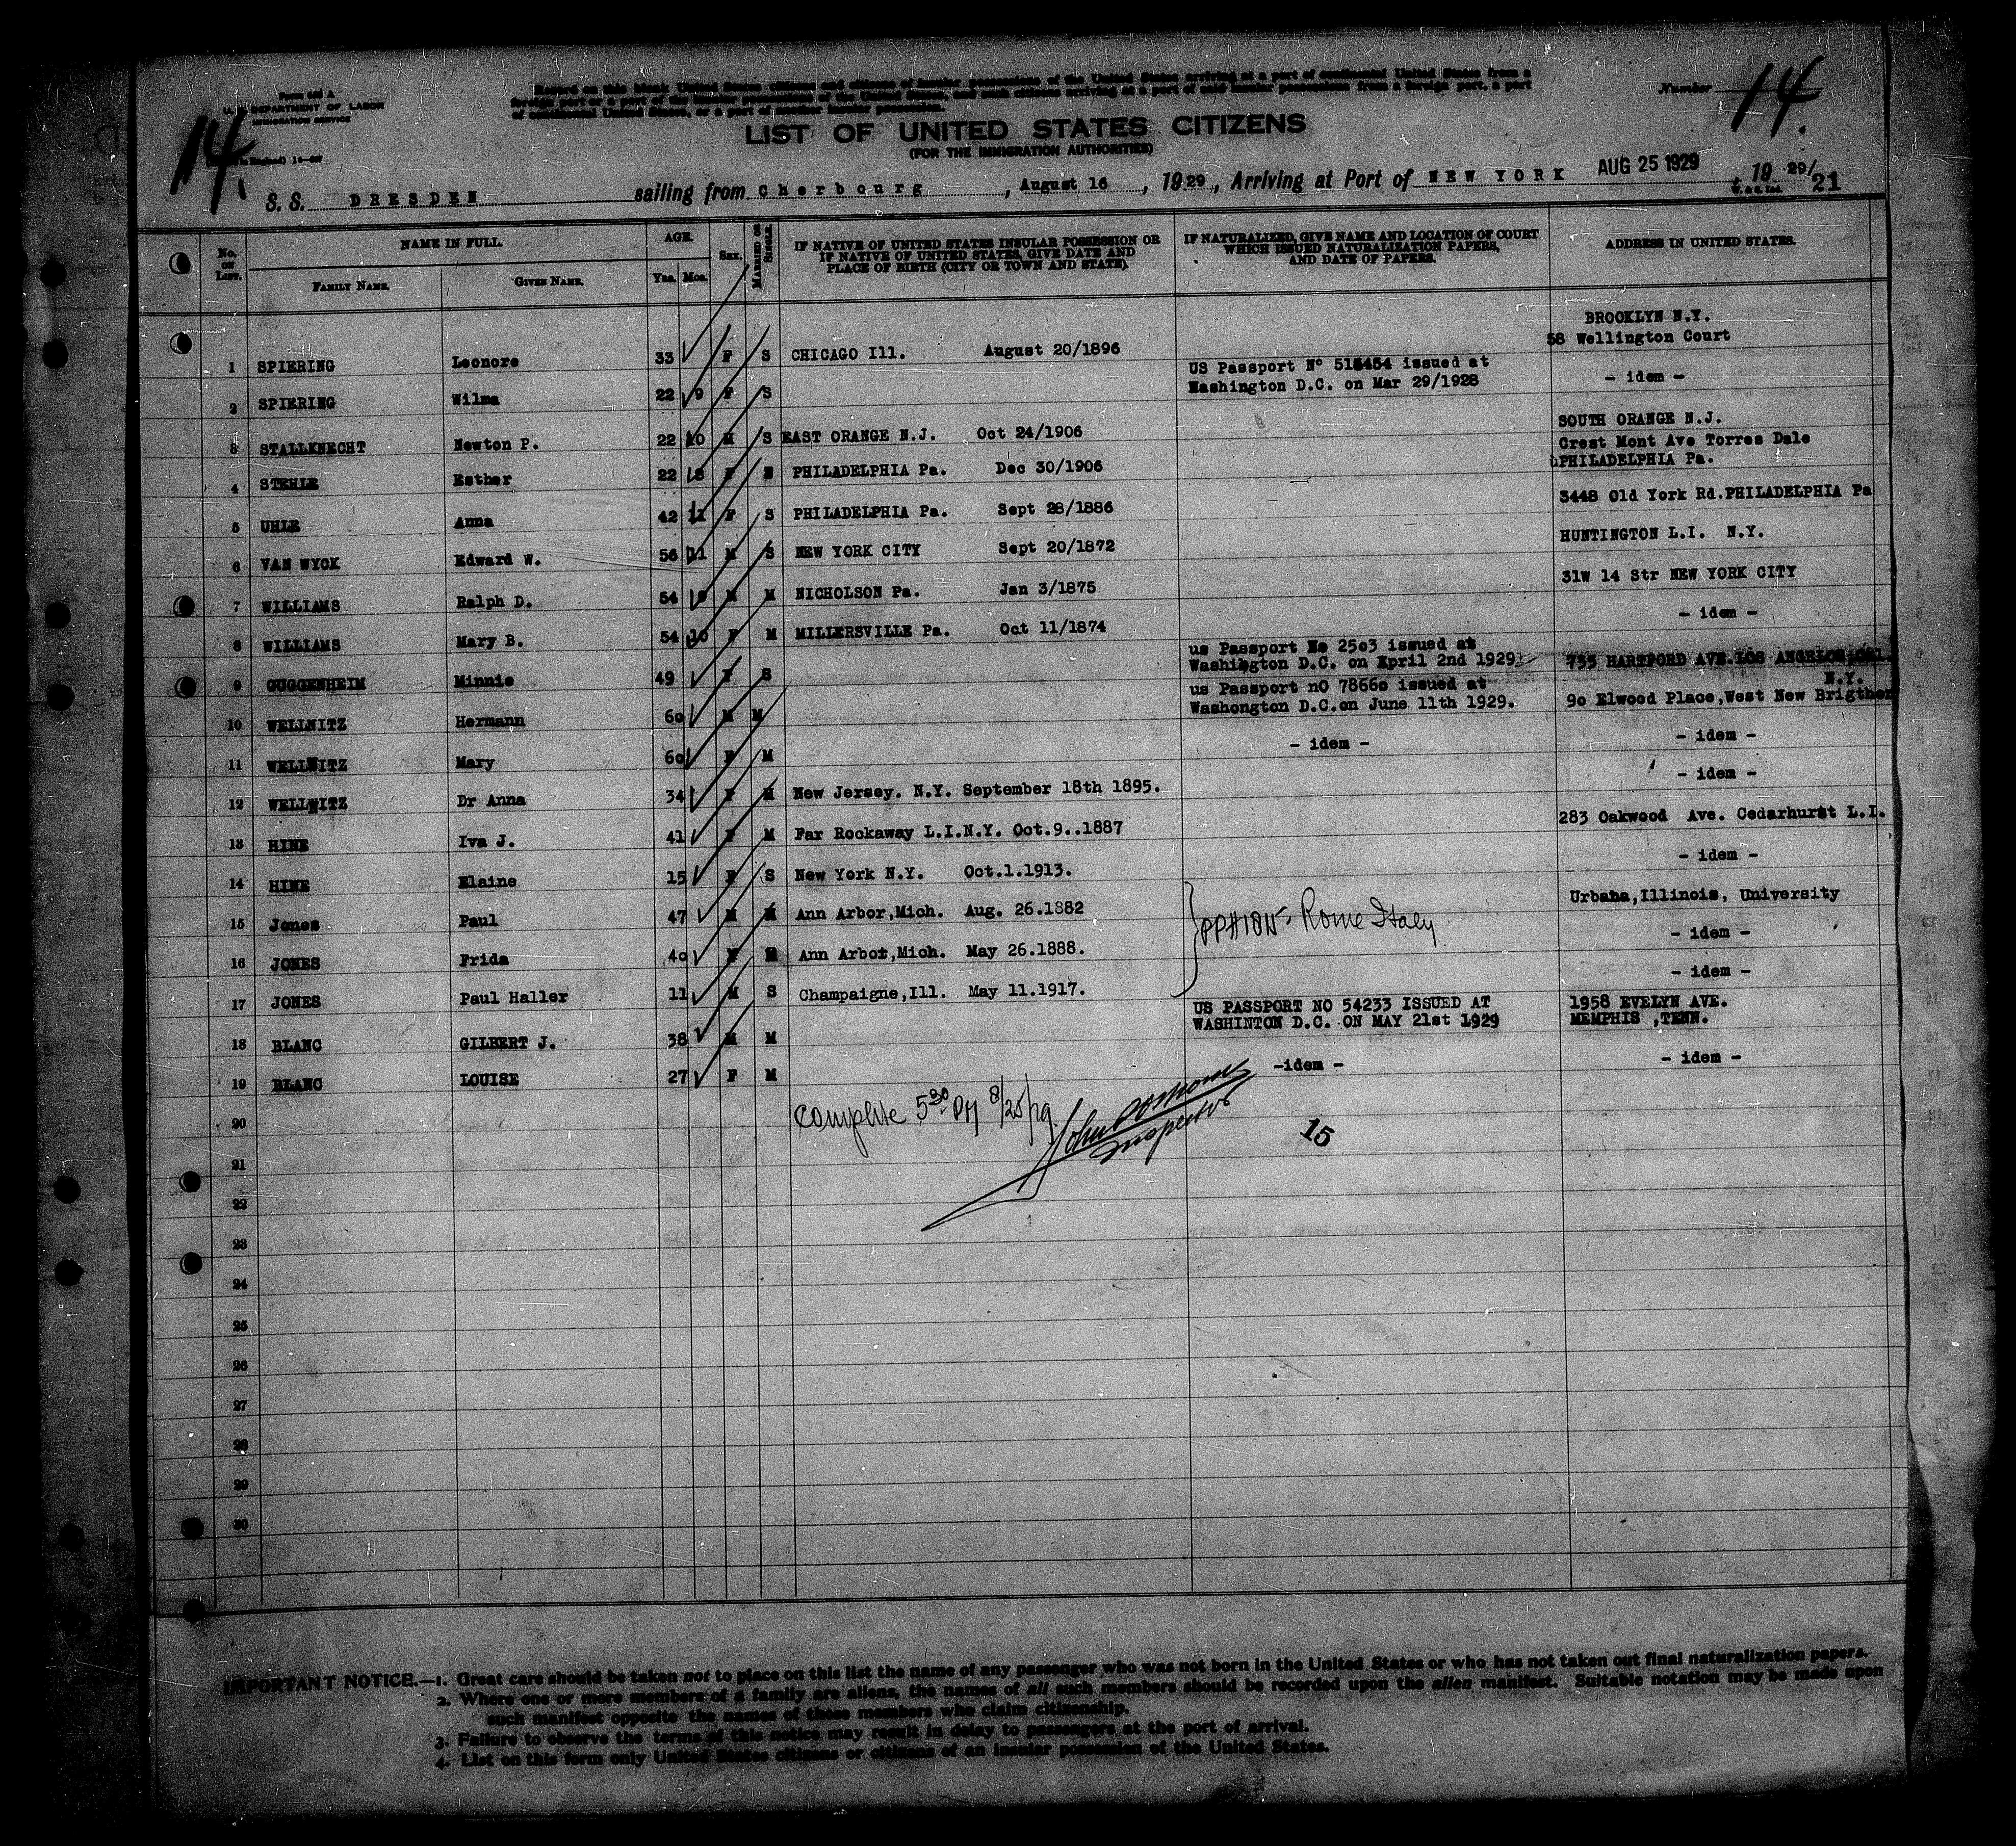 Form 630 A
U. S. DEPARTMENT OF LABOR
IMMIGRATION SERVICE
14.
Number 14.
Record on this blank United States citizens and citizens of insular possessions of the United States arriving at a port of continental United States from a
foreign port or a port of the insular possessions of the United States, and such citizens arriving at a port of said insular possessions from a foreign port, a port
of continental United States, or a port of another insular possession.
LIST OF UNITED STATES CITIZENS
(FOR THE IMMIGRATION AUTHORITIES)
S. S. DRESDEN sailing from Cherbourg, August 16, 1929, Arriving at Port of NEW YORK AUG 25 1929, 19 29/21
No. on List. NAME IN FULL. AGE. Sex. MARRIED OR SINGLE. IF NATIVE OF UNITED STATES INSULAR POSSESSION OR IF NATIVE OF UNITED STATES, GIVE DATE AND PLACE OF BIRTH (CITY OR TOWN AND STATE). IF NATURALIZED, GIVE NAME AND LOCATION OF COURT WHICH ISSUED NATURALIZATION PAPERS, AND DATE OF PAPERS. ADDRESS IN UNITED STATES.
FAMILY NAME. GIVEN NAME. Yrs. Mos.
BROOKLYN N.Y.
1 SPIERING Leonore 33 F S CHICAGO Ill. August 20/1896 58 Wellington Court
2 SPIERING Wilma 22 9 F S US Passport No 518454 issued at Washington D.C. on Mar 29/1928 - idem -
3 STALLKNECHT Newton P. 22 10 M S EAST ORANGE N.J. Oct 24/1906 SOUTH ORANGE N.J.
4 STEHLE Esther 22 8 F PHILADELPHIA Pa. Dec 30/1906 Crest Mont Ave Torres Dale PHILADELPHIA Pa.
5 UHLE Anna 42 11 F S PHILADELPHIA Pa. Sept 28/1886 3448 Old York Rd.PHILADELPHIA Pa
6 VAN WYCK Edward W. 56 11 M S NEW YORK CITY Sept 20/1872 HUNTINGTON L.I. N.Y.
7 WILLIAMS Ralph D. 54 M M NICHOLSON Pa. Jan 3/1875 31W 14 Str NEW YORK CITY
8 WILLIAMS Mary B. 54 10 F M MILLERSVILLE Pa. Oct 11/1874 - idem -
9 GUGGENHEIM Minnie 49 F S us Passport No 2503 issued at Washington D.C. on April 2nd 1929 735 HARTFORD AVE.LOS ANGELOS,CAL.
10 WELLNITZ Hermann 60 M M us Passport nO 78660 issued at Washongton D.C.on June 11th 1929. 90 Elwood Place,West New Brigthon N.Y.
11 WELLNITZ Mary 60 F M - idem - - idem -
12 WELLNITZ Dr Anna 34 F New Jersey. N.Y. September 18th 1895. - idem -
13 HINE Iva J. 41 F M Far Rockaway L.I.N.Y. Oct.9..1887 283 Oakwood Ave. Cedarhurst L.I.
14 HINE Elaine 15 F S New York N.Y. Oct.1.1913. - idem -
15 Jones Paul 47 M M Ann Arbor,Mich. Aug. 26.1882 Urbana,Illinois, University
16 JONES Frida 40 F M Ann Arbor,Mich. May 26.1888. - idem -
Rome Italy
17 JONES Paul Haller 11 M S Champaigne,Ill. May 11.1917. - idem -
18 BLANC GILBERT J. 38 M M US PASSPORT NO 54233 ISSUED AT WASHINTON D.C. ON MAY 21st 1929 1958 EVELYN AVE. MEMPHIS ,TENN.
19 BLANC LOUISE 27 F M -idem - - idem -
20 Complete 5 30 PM 8/25/29
Inspector
15
21
22
23
24
25
26
27
28
29
30
IMPORTANT NOTICE.—1. Great care should be taken not to place on this list the name of any passenger who was not born in the United States or who has not taken out final naturalization papers.
2. Where one or more members of a family are aliens, the names of all such members should be recorded upon the alien manifest. Suitable notation may be made upon
such manifest opposite the names of those members who claim citizenship.
3. Failure to observe the terms of this notice may result in delay to passengers at the port of arrival.
4. List on this form only United States citizens or citizens of an insular possession of the United States.